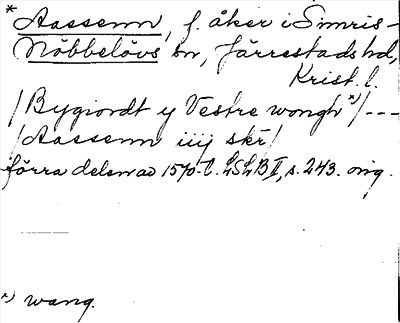 * Aassenn, f. åker i Simris-
Nöbbelövs sn, Järrestads hd,
Krist. l.
/Bygiordt y Vestre wongh x)/ ---
/Aassenn iiij skr/
förra delen av 1570-t. LSLB II, s. 243. orig.
x) wang.